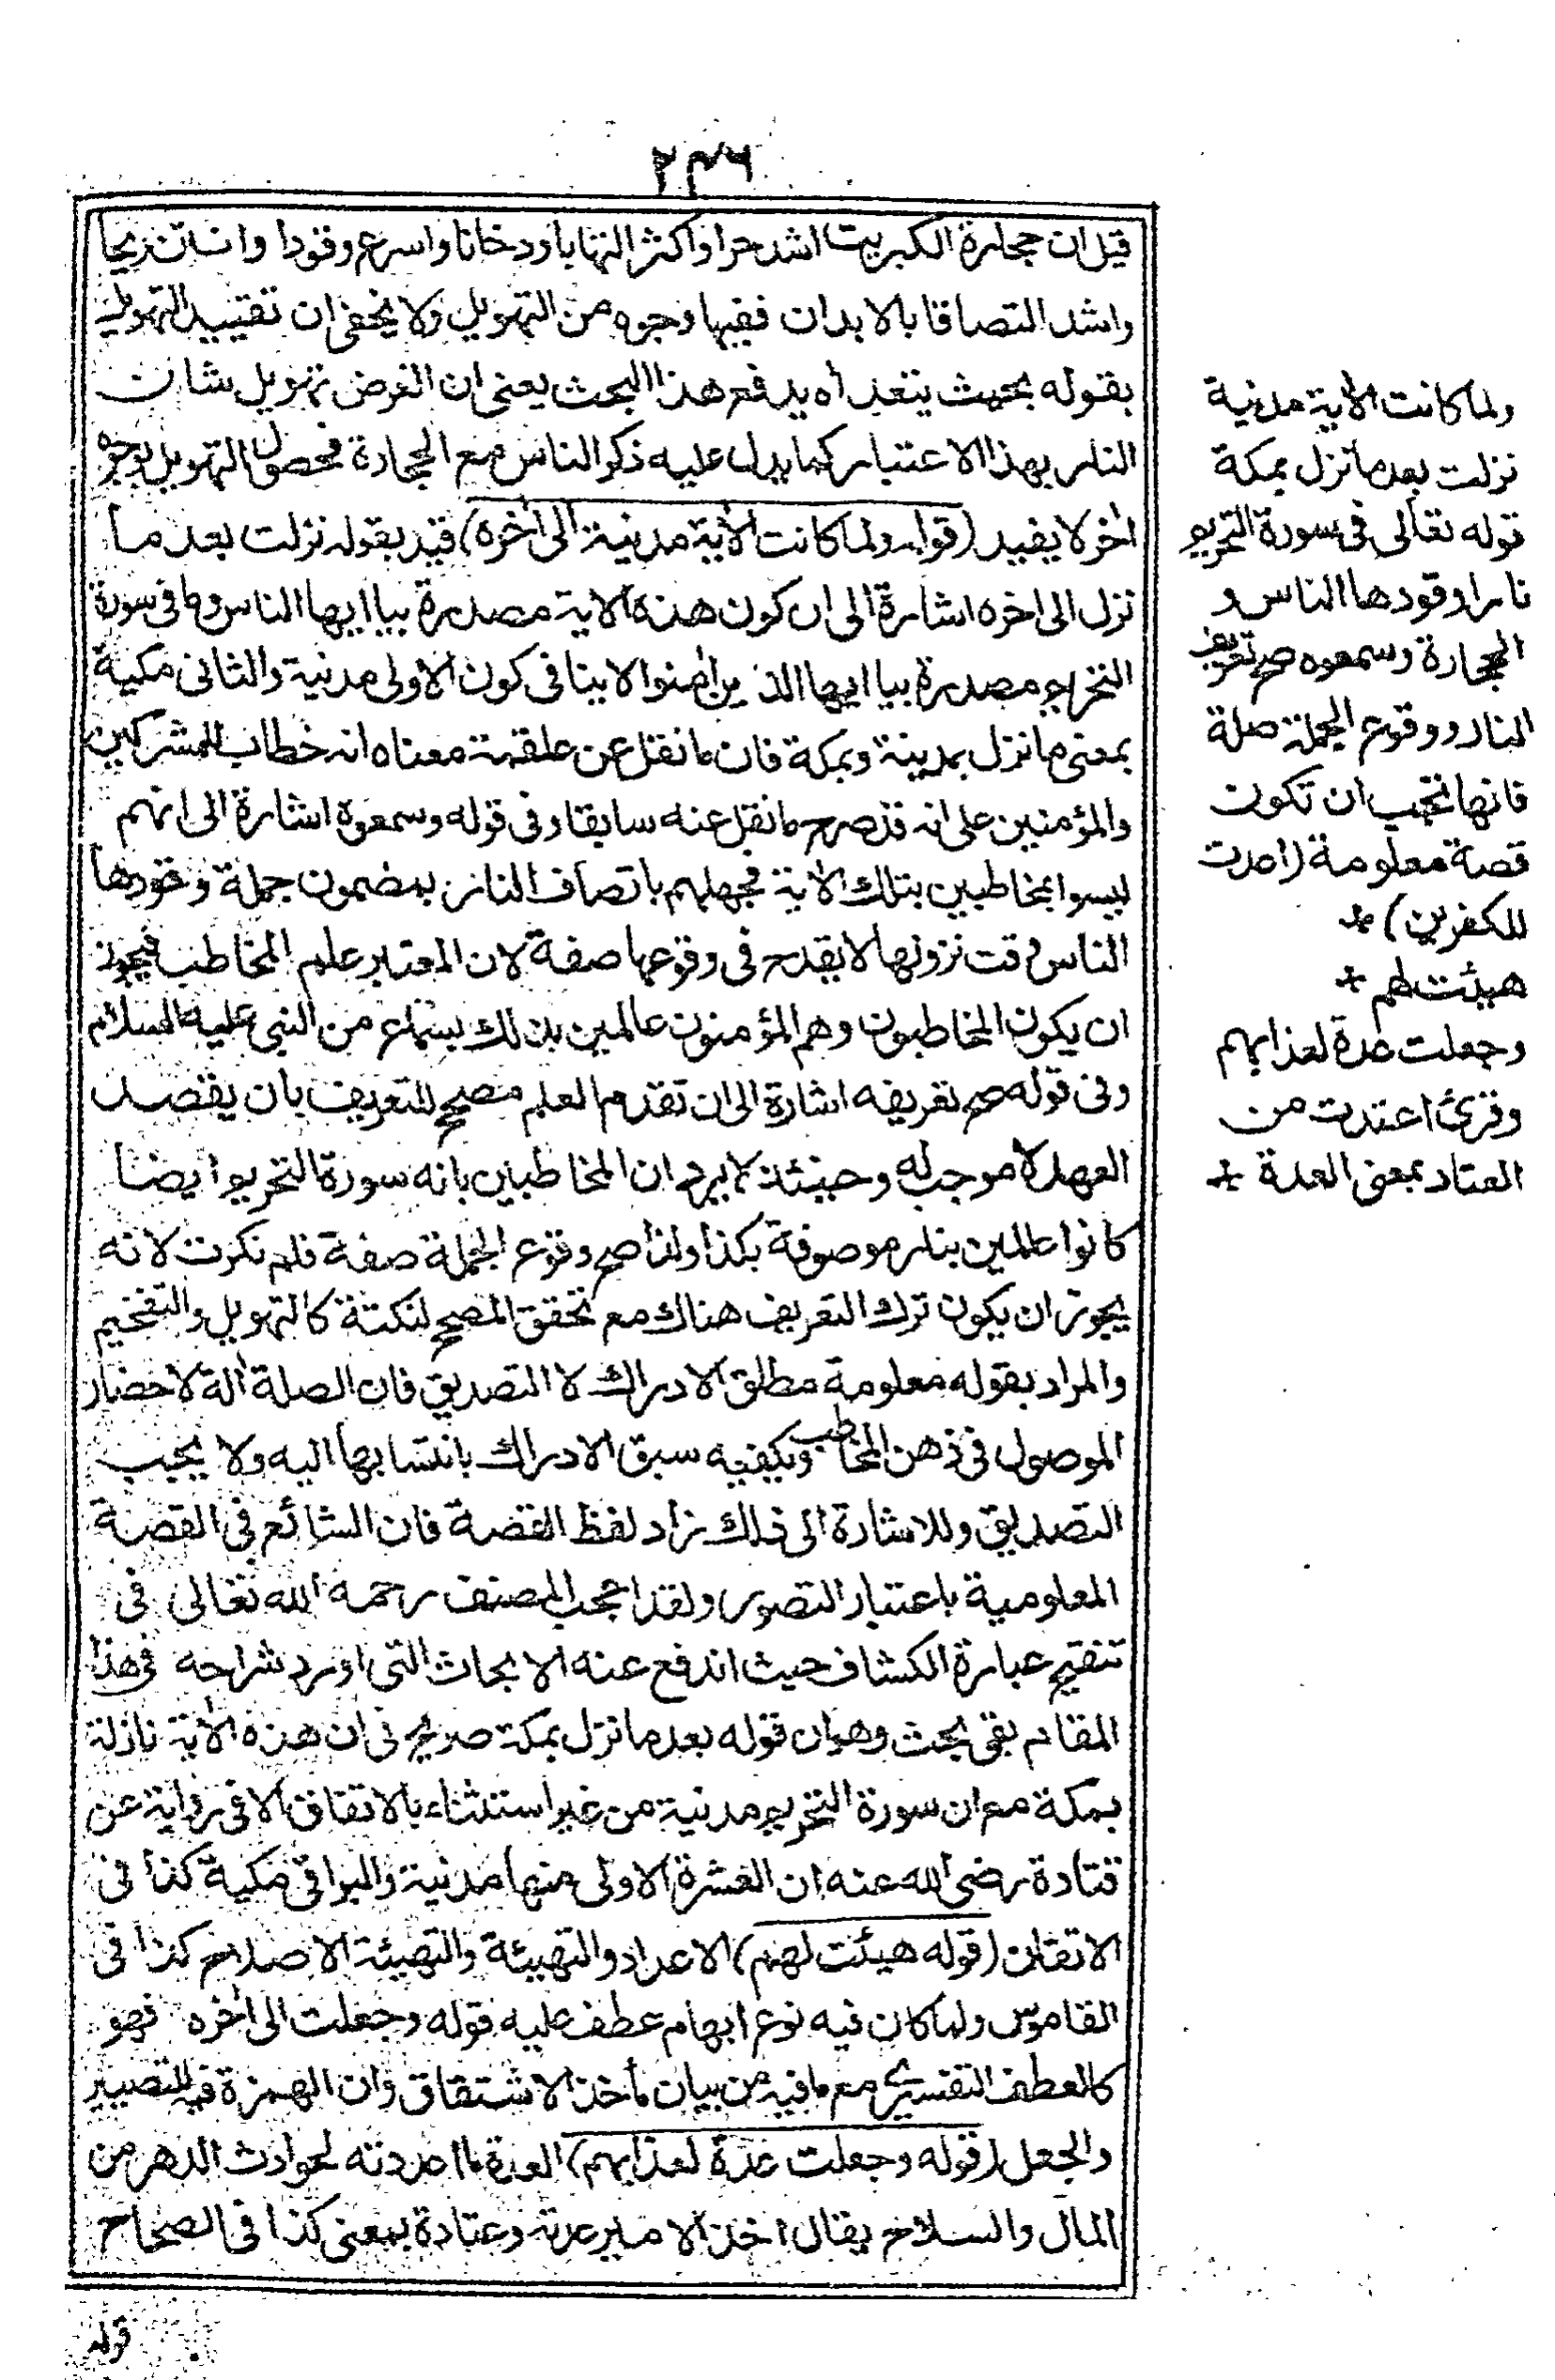 ٢٣٦
قيل ان حجارة الكبريت اشد حرا واكثر التهابا ودخانا واسرع وقودا وانتن ريحا
واشد التصاقا بالابدان ففيها وجوه من التهويل ولا يخفى ان تقييد التهويل
بقوله بحيث يتعد اه يدفع هذا البحث يعنى ان الغرض تهويل شان
النار بهذا الاعتبار كما يدل عليه ذكر الناس مع الحجارة فحصول التهويل بوجوه
اخر لا يفيد (قوله ولما كانت الآية مدنية الى آخره) قيد بقوله نزلت بعد ما
نزل الى اخره اشارة الى ان كون هذه الاية مصدرة بيا ايها الناس وما فى سورة
التحريم مصدرة بيا ايها الذين امنوا لا ينافى كون الاولى مدنية والثانى مكية
بمعنى ما نزل بمدينة وبمكة فان ما نقل عن علقمة معناه انه خطاب للمشركين
والمؤمنين على انه قد صرح ما نقل عنه سابقا وفى قوله وسمعوه اشارة الى انهم
ليسوا بمخاطبين بتلك الآية فجهلهم باتصاف النار بمضمون جملة وقودها
الناس وقت نزولها لا يقدح فى وقوعها صفة لان المعتبر علم المخاطب فيجوز
ان يكون المخاطبون وهم المؤمنون عالمين بذلك بسماع من النبى عليه السلام
وفى قوله صح تعريفه اشارة الى ان تقدم العلم مصحح للتعريف بان يقصد
العهد لا موجب له وحينئذ لا يرد ان المخاطبين بانه سورة التحريم ايضا
كانوا عالمين بنار موصوفة بكذا ولذا صح وقوع الجملة صفة فلم نكرت لانه
يجوز ان يكون ترك التعريف هناك مع تحقق المصحح لنكتة كالتهويل والتفخيم
والمراد بقوله معلومة مطلق الادراك لا التصديق فان الصلة آلة لاحضار
الموصول فى ذهن المخاطب ويكفيه سبق الادراك بانتسابها اليه ولا يجب
التصديق وللاشارة الى ذلك زاد لفظ القصة فان الشائع فى القصة
المعلومية باعتبار التصور ولقد اعجب المصنف رحمه الله تعالى فى
تنقيح عبارة الكشاف حيث اندفع عنه الابحاث التى اورد شراحه فى هذا
المقام بقى بحث وهو ان قوله بعد ما نزل بمكة صريح فى ان هذه الآية نازلة
بمكة مع ان سورة التحريم مدنية من غير استثناء بالاتفاق الا فى رواية عن
قتادة رضى الله عنه ان العشرة الاولى منها مدنية والبواقى مكية كذا فى
الاتقان (قوله هيئت لهم) الاعداد والتهيئة والتهيئة الاصلاح كذا فى
القاموس ولما كان فيه نوع ابهام عطف عليه قوله وجعلت الى آخره فهو
كالعطف التفسيرى مع ما فيه من بيان مأخذ الاشتقاق وان الهمزة فيه للتصيير
والجعل (قوله وجعلت عدة لعذابهم) العدة ما اعددته لحوادث الدهر من
المال والسلاح يقال اخذ الامير عدته وعتادة بمعنى كذا فى الصحاح
قوله
ولما كانت الاية مدنية
نزلت بعد ما نزل بمكة
قوله تعالى فى سورة التحريم
نارا وقودها الناس و
الحجارة وسمعوه صح تعريف
النار ووقوع الجملة صلة
فانها تجب ان تكون
قصة معلومة (اعدت
للكفرين) *
هيئت لهم *
وجعلت عدة لعذابهم
وقرئ اعتدت من
العتاد بمعنى العدة *